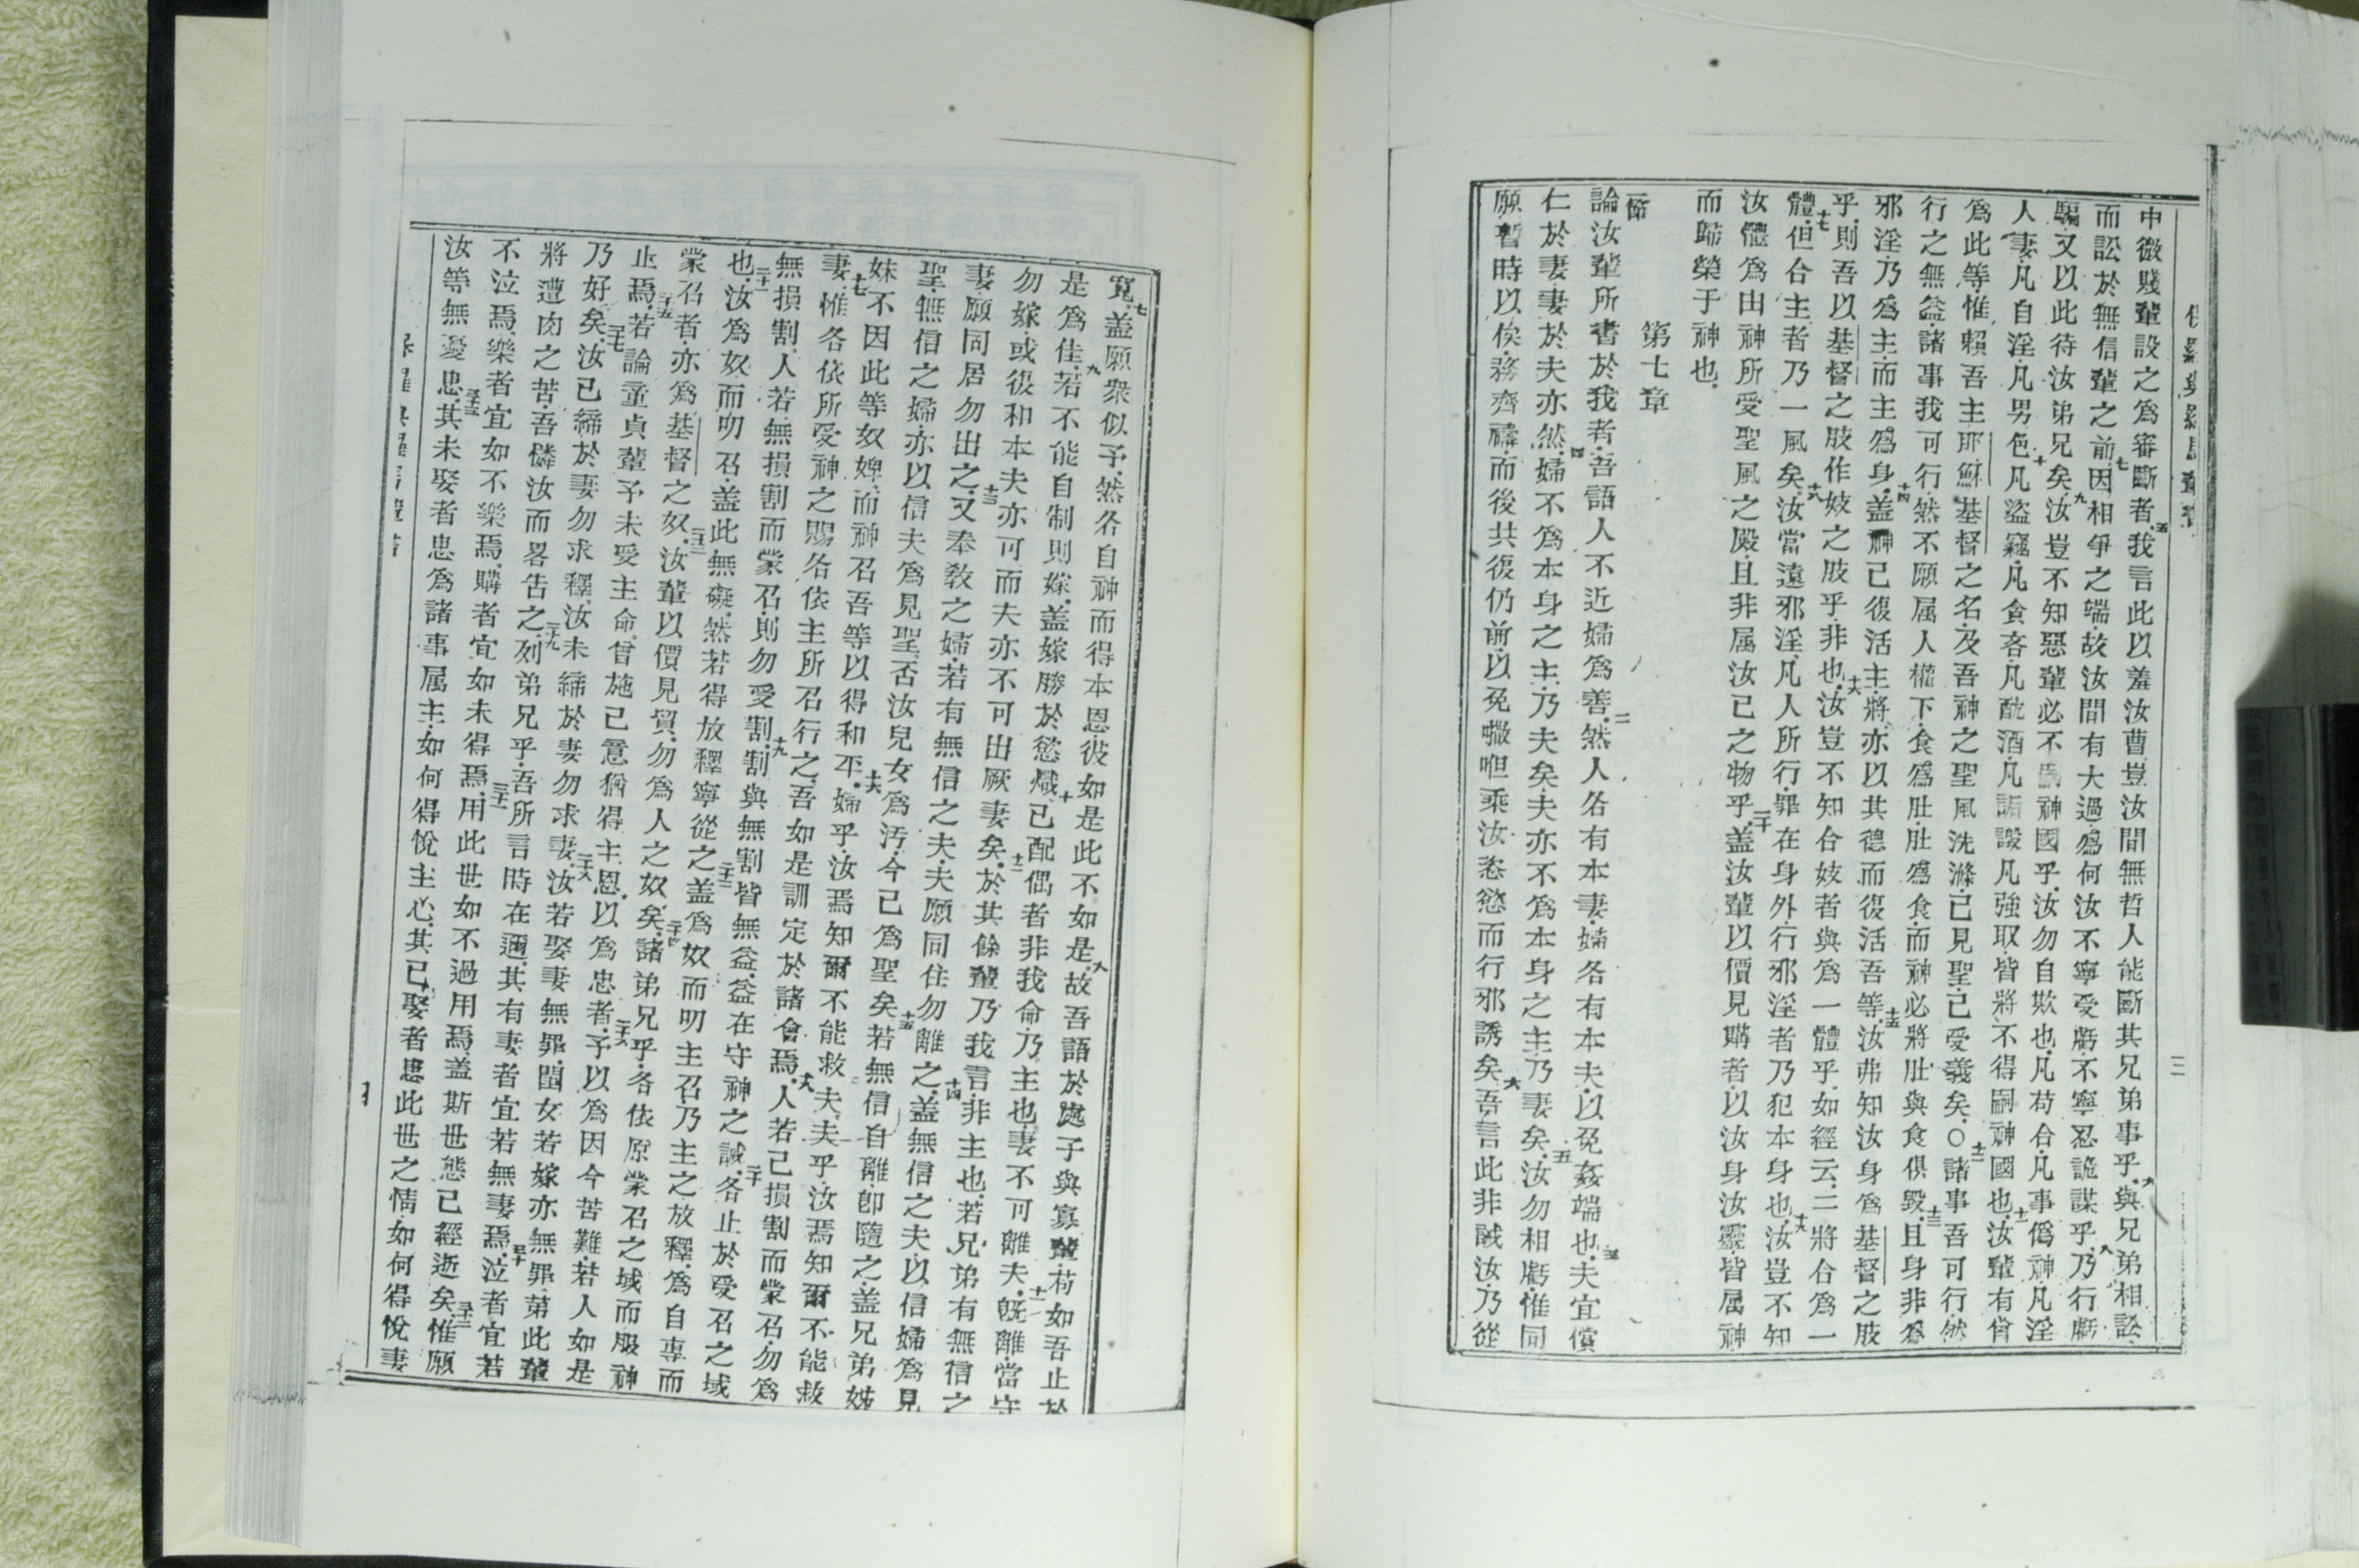 中微賤輩設之爲審斷者五我言此以羞汝曹豈汝間無哲人能斷其兄弟事乎六與兄弟相訟
而訟於無信輩之前七因相爭之端故汝間有大過爲何汝不寧受虧不寧忍詭謀乎八乃行虧
騙又以此待汝弟兄矣九汝豈不知惡輩必不嗣神國乎汝勿自欺也凡苟合凡事僞神凡淫
人妻凡自淫凡男色十凡盜竊凡貪吝凡酖酒凡詬譭凡強取皆將不得嗣神國也十一汝輩有曾
爲此等惟賴吾主耶穌基督之名及吾神之聖風洗滌己見聖己受義矣○十二諸事吾可行然
行之無益諸事我可行然不願属人權下十三食爲肚肚爲食而神必將肚與食俱毀且身非爲
邪淫乃爲主而主爲身十四蓋神己復活主將亦以其德而復活吾等十五汝弗知汝身爲基督之肢
乎則吾以基督之肢作妓之肢乎非也十六汝豈不知合妓者與爲一體乎如經云二將合爲一
體十七但合主者乃一風矣十八汝當遠邪淫凡人所行罪在身外行邪淫者乃犯本身也十九汝豈不知
汝體爲由神所受聖風之殿且非属汝己之物乎二十蓋汝輩以價見購者以汝身汝靈皆属神
而歸榮于神也
第七章
一節
論汝輩所書於我者吾語人不近婦爲善二然人各有本妻婦各有本夫以免姦端也三夫宜償
仁於妻妻於夫亦然四婦不爲本身之主乃夫矣夫亦不爲本身之主乃妻矣五汝勿相虧惟同
願暫時以俟務齊禱而後共復仍前以免𡃤呾乘汝恣慾而行邪誘矣六吾言此非誡汝乃從
寬七蓋願衆似予然各自神而得本恩彼如是此不如是八故吾語於處子與寡輩苟如吾止於
是爲佳九若不能自制則嫁蓋嫁勝於慾熾十己配偶者非我命乃主也妻不可離夫十一旣離當守
勿嫁或復和本夫亦可而夫亦不可出厥妻矣十二於其餘輩乃我言非主也若兄弟有無信之
妻願同居勿出之十三又奉敎之婦若有無信之夫夫願同住勿離之十四蓋無信之夫以信婦爲見
聖無信之婦亦以信夫爲見聖否汝兒女爲汚今己爲聖矣十五若無信自離卽隨之蓋兄弟姊
妹不因此等奴婢而神召吾等以得和平十六婦乎汝焉知爾不能救夫夫乎汝焉知爾不能救
妻十七惟各依所受神之賜各依主所召行之吾如是訓定於諸會焉十八人若己損割而蒙召勿爲
無損割人若無損割而蒙召則勿受割十九割與無割皆無益益在守神之誡二十各止於受召之域
也二十一汝爲奴而叨召蓋此無礙然若得放釋寧從之二十二蓋爲奴而叨主召乃主之放釋爲自專而
蒙召者亦爲基督之奴二十三汝輩以價見貿勿爲人之奴矣二十四諸弟兄乎各依原蒙召之域而服神
止焉二十五若論童貞輩予未受主命曾施己意猶得主恩以爲忠者二十六予以爲因今苦難若人如是
乃好矣二十七汝已締於妻勿求釋汝未締於妻勿求妻二十八汝若娶妻無罪閨女若嫁亦無罪第此輩
將遭肉之苦吾憐汝而畧告之二十九列弟兄乎吾所言時在邇其有妻者宜若無妻焉三十泣者宜若
不泣焉樂者宜如不樂焉購者宜如未得焉三十一用此世如不過用焉蓋斯世態己經逝矣三十二惟願
汝等無憂思三十三其未娶者思爲諸事属主如何得悅主心其已娶者思此世之情如何得悅妻